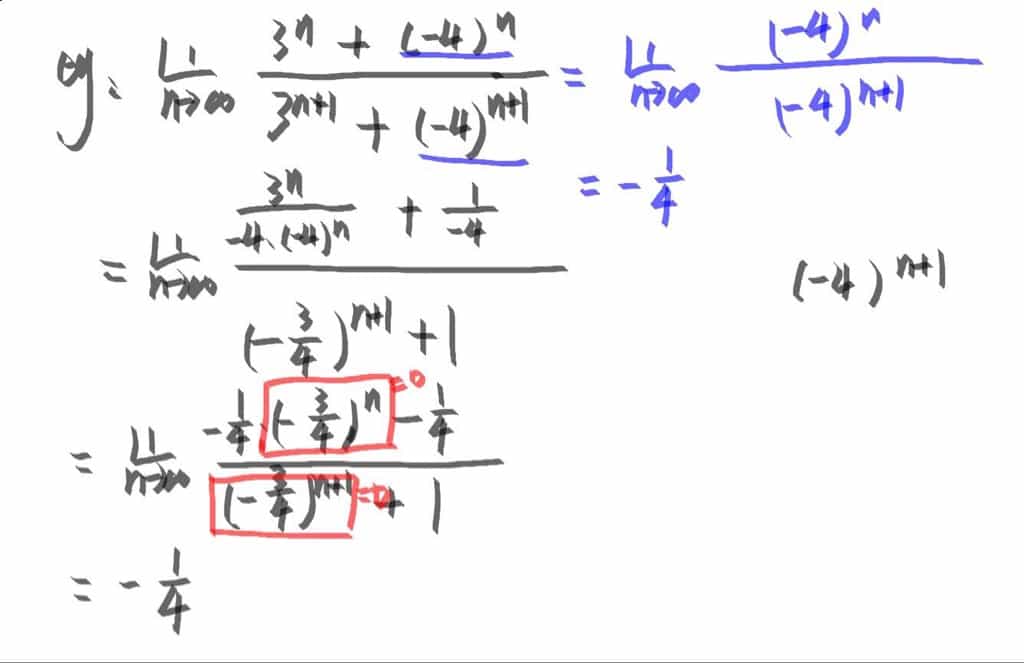 eg: lim n→∞ (3^n + (-4)^n) / (3^(n+1) + (-4)^(n+1)) = lim n→∞ (-4)^n / (-4)^(n+1)
= -1/4
= lim n→∞ (3^n / (-4·(-4)^n) + 1/-4) / ((-3/4)^(n+1) + 1)
(-4)^(n+1)
= lim n→∞ (-1/4·(-3/4)^n - 1/4) / ((-3/4)^(n+1) + 1)
=0
=0
= -1/4